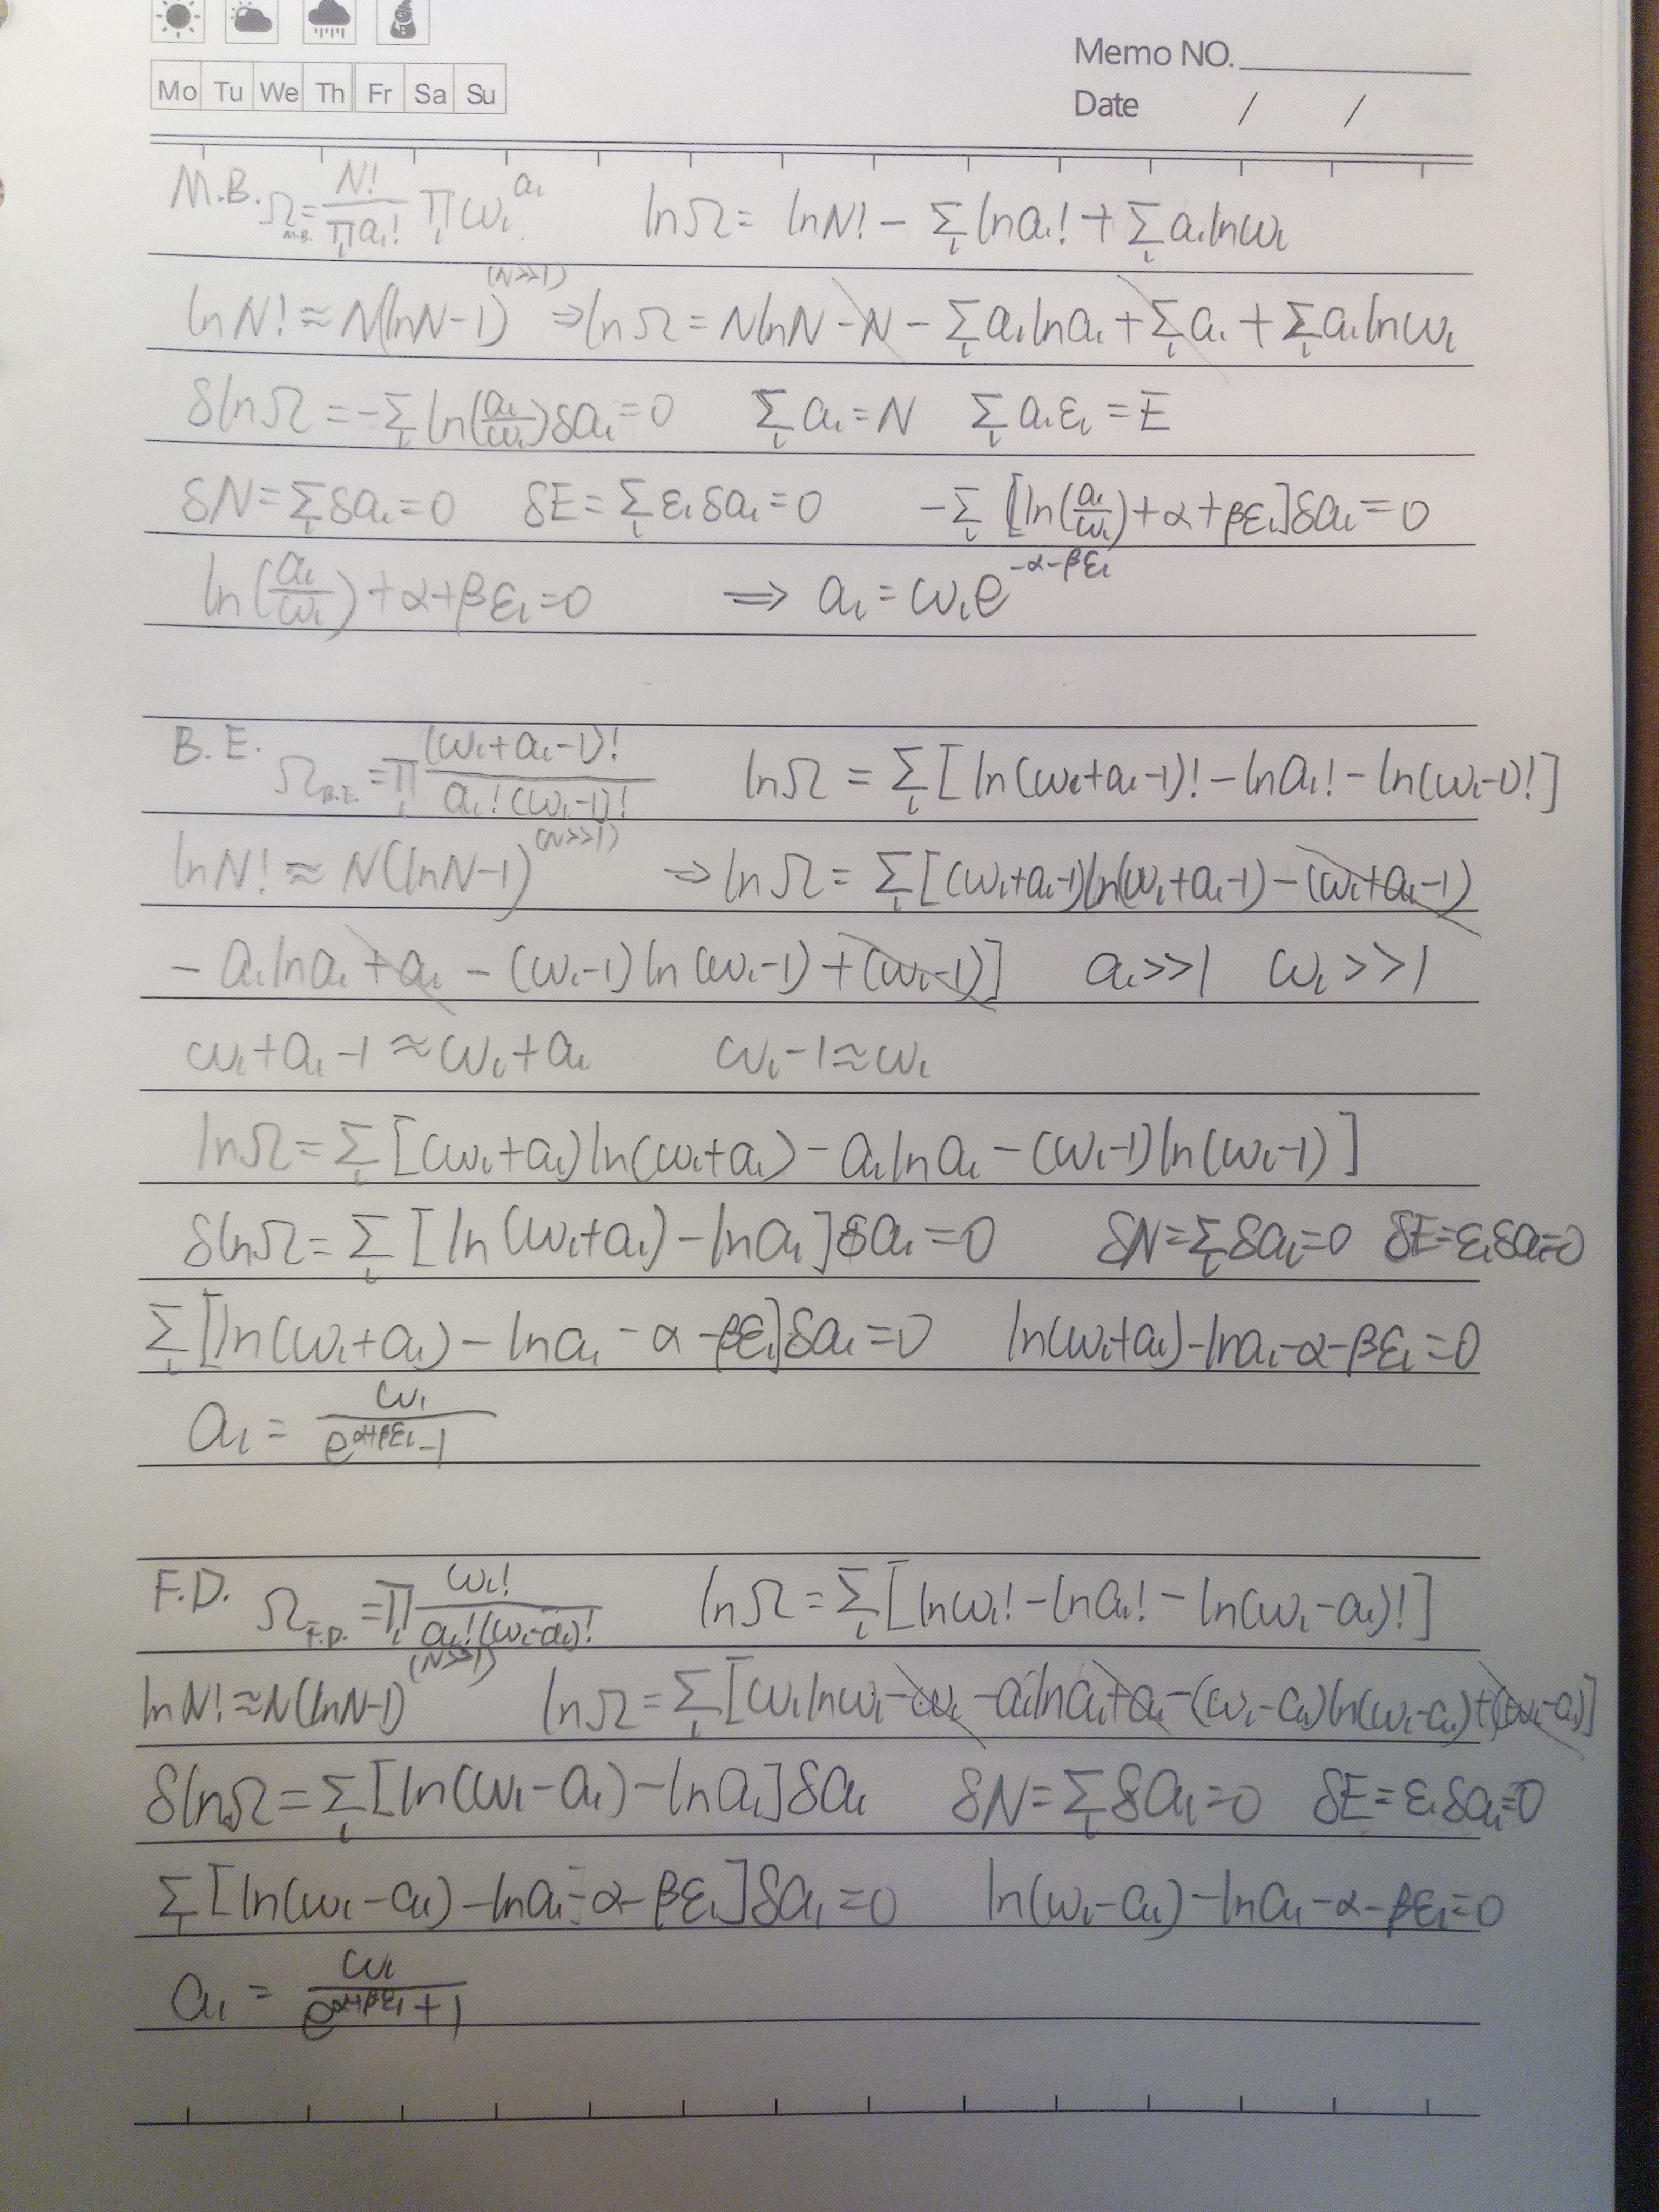 Memo NO.
Mo Tu We Th Fr Sa Su
Date / /
M.B. Ω_{M.B.} = N!/∏_l a_l! ∏_l ω_l^{a_l} lnΩ = lnN! − Σ_l ln a_l! + Σ_l a_l ln ω_l
lnN! ≈ N(lnN−1) (N>>1) ⇒ lnΩ = NlnN − N − Σ_l a_l ln a_l + Σ_l a_l + Σ_l a_l ln ω_l
δlnΩ = −Σ_l ln(a_l/ω_l)δa_l = 0 Σ_l a_l = N Σ_l a_l ε_l = E
δN = Σ_l δa_l = 0 δE = Σ_l ε_l δa_l = 0 −Σ_l [ln(a_l/ω_l) + α + βε_l]δa_l = 0
ln(a_l/ω_l) + α + βε_l = 0 ⇒ a_l = ω_l e^{−α−βε_l}
B.E. Ω_{B.E.} = ∏_l (ω_l+a_l−1)!/a_l!(ω_l−1)! lnΩ = Σ_l [ln(ω_l+a_l−1)! − ln a_l! − ln(ω_l−1)!]
lnN! ≈ N(lnN−1) (N>>1) ⇒ lnΩ = Σ_l [(ω_l+a_l−1)ln(ω_l+a_l−1) − (ω_l+a_l−1)
− a_l ln a_l + a_l − (ω_l−1)ln(ω_l−1) + (ω_l−1)] a_l>>1 ω_l>>1
ω_l+a_l−1 ≈ ω_l+a_l ω_l−1 ≈ ω_l
lnΩ = Σ_l [(ω_l+a_l)ln(ω_l+a_l) − a_l ln a_l − (ω_l−1)ln(ω_l−1)]
δlnΩ = Σ_l [ln(ω_l+a_l) − ln a_l]δa_l = 0 δN = Σ_l δa_l = 0 δE = ε_l δa_l = 0
Σ_l [ln(ω_l+a_l) − ln a_l − α − βε_l]δa_l = 0 ln(ω_l+a_l) − ln a_l − α − βε_l = 0
a_l = ω_l/e^{α+βε_l}−1
F.D. Ω_{F.D.} = ∏_l ω_l!/a_l!(ω_l−a_l)! lnΩ = Σ_l [ln ω_l! − ln a_l! − ln(ω_l−a_l)!]
lnN! ≈ N(lnN−1) (N>>1) lnΩ = Σ_l [ω_l ln ω_l − ω_l − a_l ln a_l + a_l − (ω_l−a_l)ln(ω_l−a_l) + (ω_l−a_l)]
δlnΩ = Σ_l [ln(ω_l−a_l) − ln a_l]δa_l δN = Σ_l δa_l = 0 δE = ε_l δa_l = 0
Σ_l [ln(ω_l−a_l) − ln a_l − α − βε_l]δa_l = 0 ln(ω_l−a_l) − ln a_l − α − βε_l = 0
a_l = ω_l/e^{α+βε_l}+1